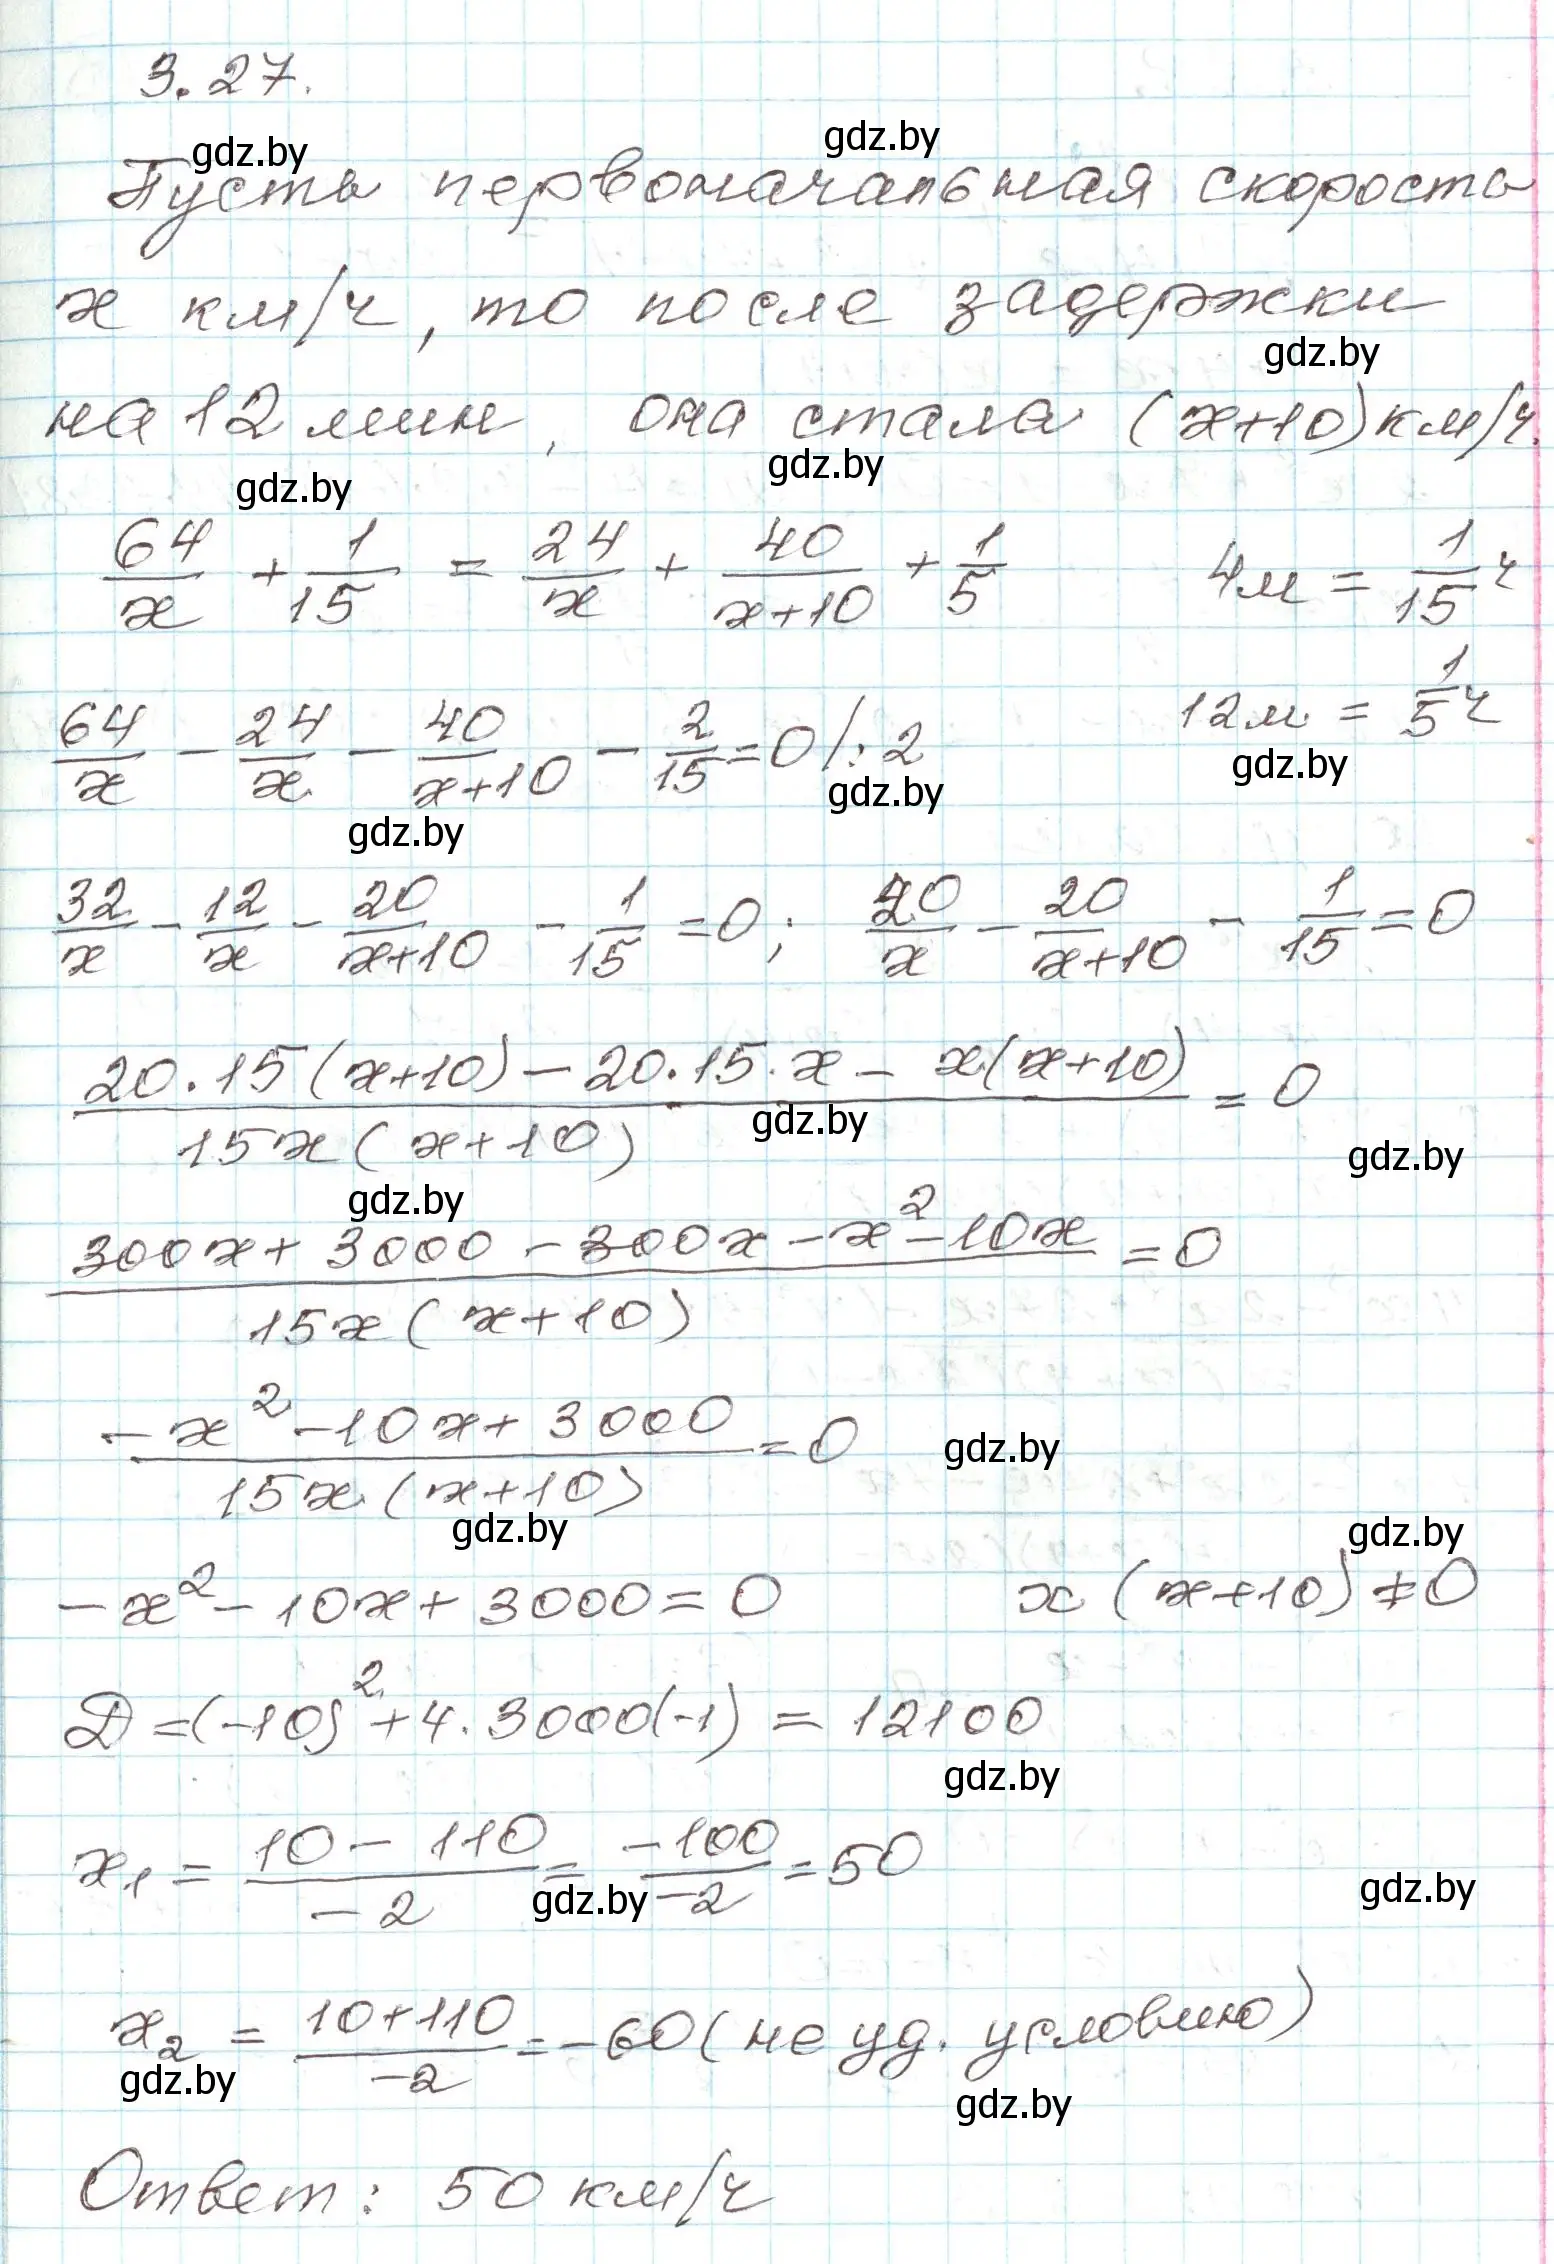 3.27.
gdz.by gdz.by
Пусть первоначальная скорость
х км/ч, то после задержки
gdz.by
на 12 мин, она стала (x+10) км/ч.
gdz.by gdz.by
64/x + 1/15 = 24/x + 40/(x+10) + 1/5    4м = 1/15 ч
64/x - 24/x - 40/(x+10) - 2/15 = 0 /:2    12м = 1/5 ч
gdz.by gdz.by gdz.by
32/x - 12/x - 20/(x+10) - 1/15 = 0;   20/x - 20/(x+10) - 1/15 = 0
(20·15(x+10) - 20·15·x - x(x+10))/(15x(x+10)) = 0
gdz.by gdz.by gdz.by
(300x + 3000 - 300x - x² - 10x)/(15x(x+10)) = 0
(-x² - 10x + 3000)/(15x(x+10)) = 0
gdz.by gdz.by gdz.by
-x² - 10x + 3000 = 0    x(x+10) ≠ 0
D = (-10)² + 4·3000(-1) = 12100
gdz.by
x₁ = (10 - 110)/(-2) = -100/-2 = 50
gdz.by gdz.by
x₂ = (10+110)/(-2) = -60 (не уд. условию)
gdz.by gdz.by
Ответ: 50 км/ч